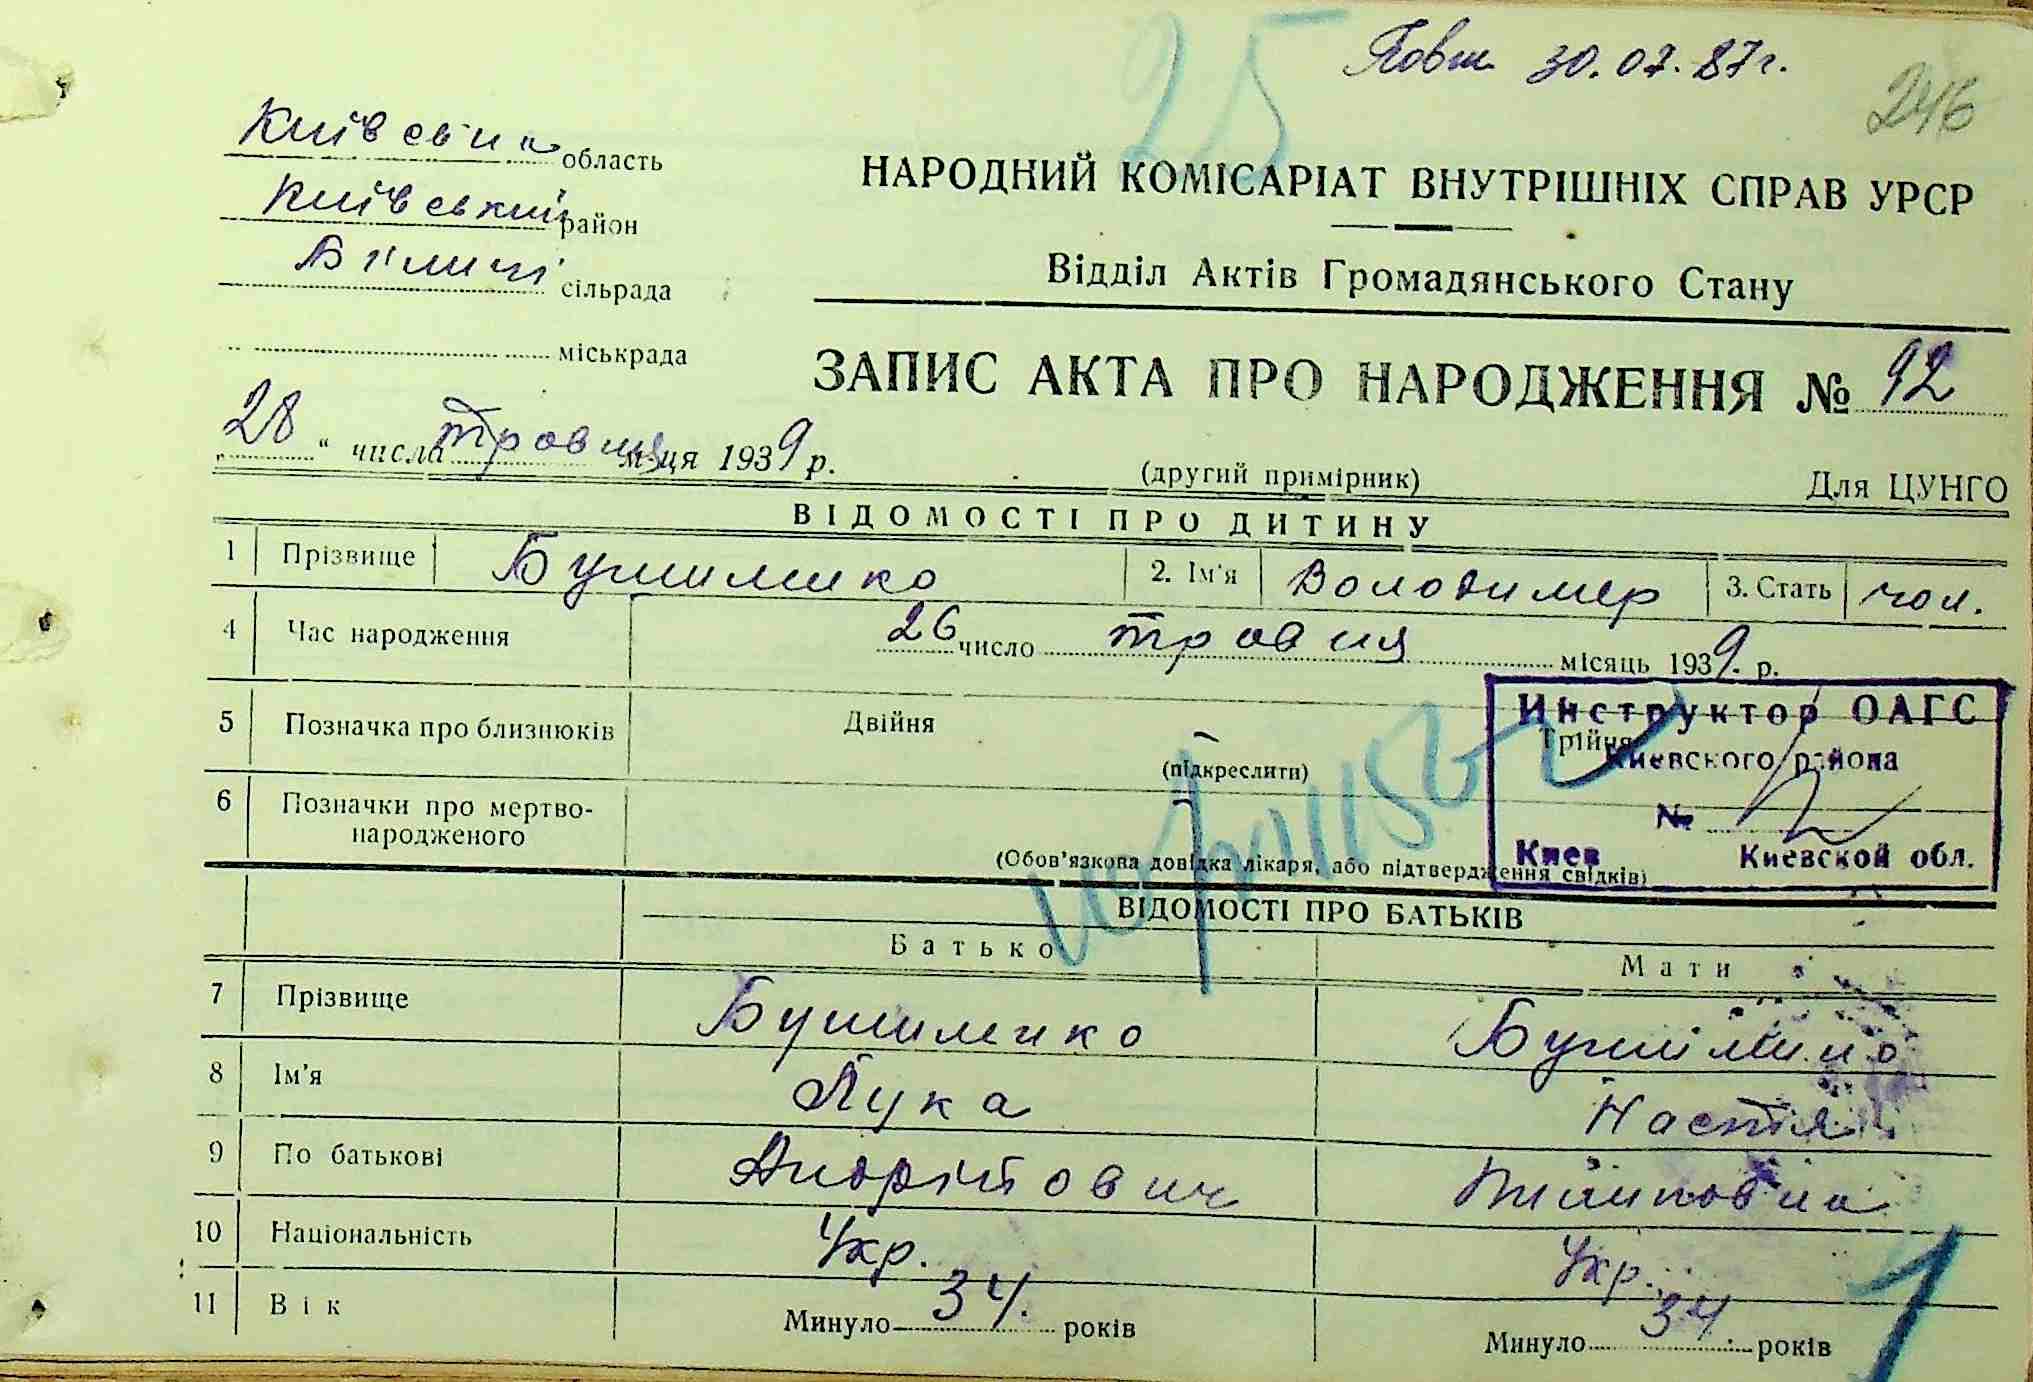 25
Повт. 30.07.87г.
246
Київська область
Київський район
Біличі сільрада
міськрада
НАРОДНИЙ КОМІСАРІАТ ВНУТРІШНІХ СПРАВ УРСР
Відділ Актів Громадянського Стану
ЗАПИС АКТА ПРО НАРОДЖЕННЯ № 92
„28“ числа травня м-ця 1939 р.
(другий примірник)
Для ЦУНГО
ВІДОМОСТІ ПРО ДИТИНУ
1 Прізвище 2. Ім'я Володимер 3. Стать чол.
4 Час народження 26 число травня місяць 1939. р.
5 Позначка про близнюків Двійня Трійня
(підкреслити)
6 Позначки про мертвонародженого
(Обов'язкова довідка лікаря, або підтвердження свідків)
Инструктор ОАГС
Киевского района
№
Киев Киевской обл.
ВІДОМОСТІ ПРО БАТЬКІВ
Батько Мати
7 Прізвище
8 Ім'я Лука Настя
9 По батькові
10 Національність Укр. Укр.
11 Вік Минуло 34. років Минуло 34 років
1